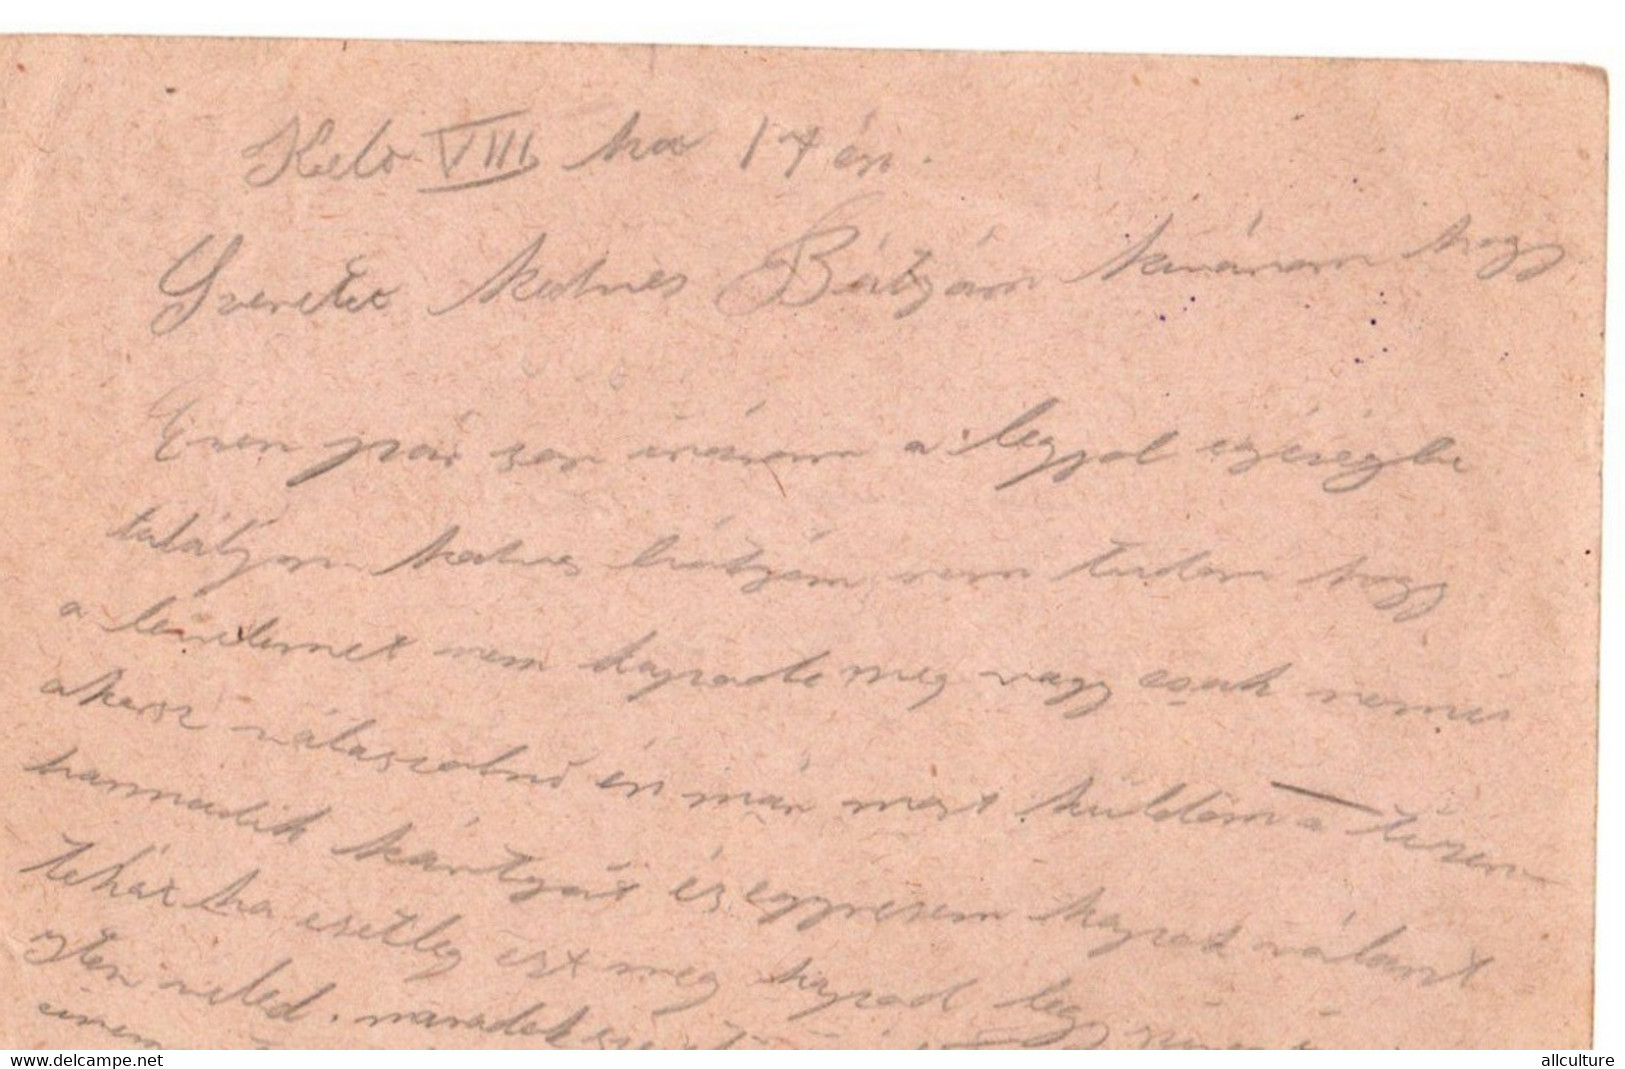 Kelt VIII ha 14 én.
Szeretet kedves Bátyám kivánom hogy
Ezen pár sor irásom a legjobb egéségbe
találjon kedves bátyám nem tudom hogy
a levelemet nem kapode meg vagy csak nemis
akarsz válaszolni én már most küldöm a tizen
harmadik kártyát és egyresem kapok választ
tehát ha esetleg ezt meg kapod légy
isten veled. maradok